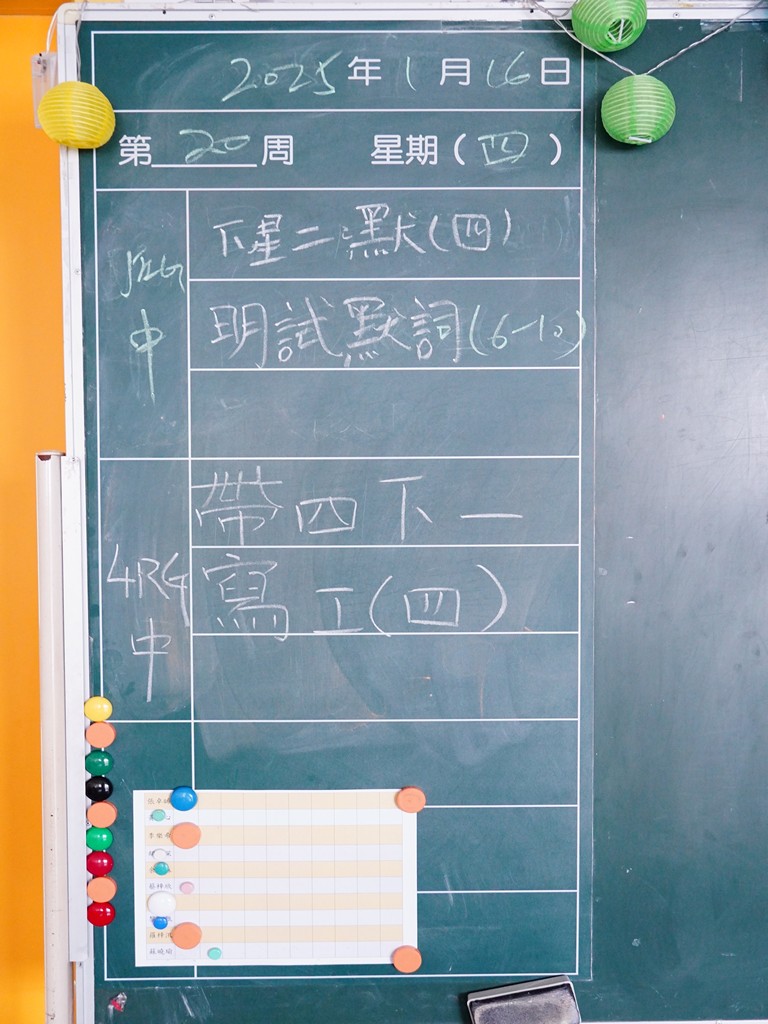 2025年1月16日
第20周 星期(四)
下星二默(四)
明試默詞(6-10)
中
帶四下一
寫工(四)
4RG
中